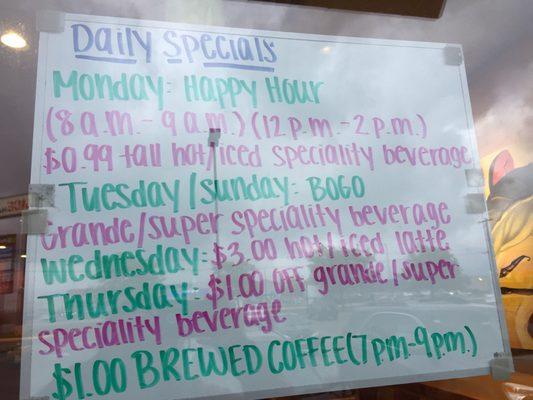 Daily Specials
Monday: Happy Hour
(8 a.m. - 9 a.m.) (12 p.m. - 2 p.m.)
$0.99 tall hot/iced speciality beverage
Tuesday/Sunday: BOGO
Grande/super speciality beverage
Wednesday: $3.00 hot/iced latte
Thursday: $1.00 off grande/super
speciality beverage
$1.00 BREWED COFFEE (7pm-9pm.)